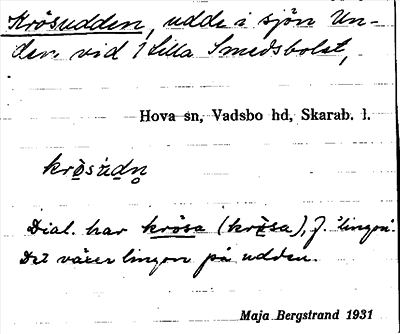 Krösudden, udde i sjön Un-
den vid Lilla Smedsbolet,
Hova sn, Vadsbo hd, Skarab. l.
krösùdn̥
Dial. har krösa (krösa), f. 'lingon'.
Det växer lingon på udden.
Maja Bergstrand 1931